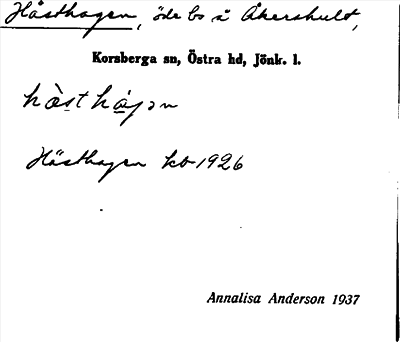 Hästhagen, öde bs å Åkershult,
Korsberga sn, Östra hd, Jönk. l.
hà̱sthá̱gən
Hästhagen kb 1926
Annalisa Anderson 1937